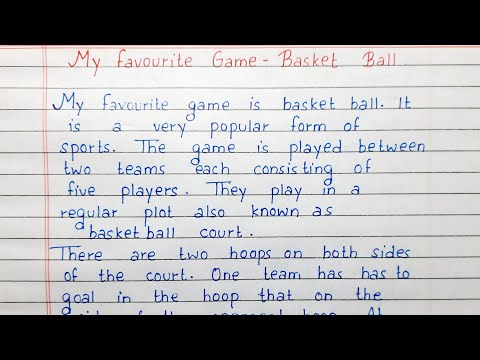 My favourite Game - Basket Ball
My favourite game is basket ball. It
is a very popular form of
sports. The game is played between
two teams each consisting of
five players. They play in a
regular plot also known as
basketball court.
There are two hoops on both sides
of the court. One team has has to
goal in the hoop that on the